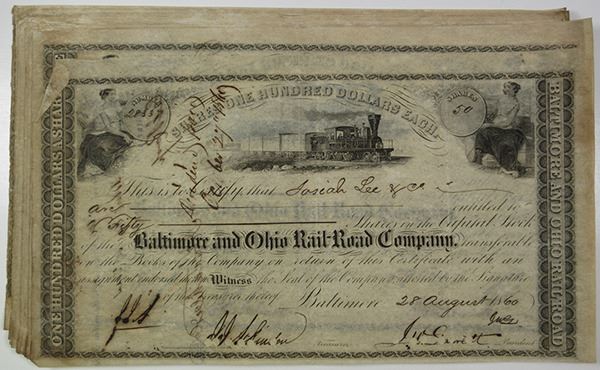 SHARES ONE HUNDRED DOLLARS EACH
NUMBER
SHARES
50
ONE HUNDRED DOLLARS A SHARE
BALTIMORE AND OHIO RAIL-ROAD
This is to Certify that Josiah Lee & Co
are entitled to
Fifty Shares in the Capital Stock
of the Baltimore and Ohio Rail-Road Company, Transferable
on the Books of the Company on return of this Certificate with an
assignment endorsed thereon Witness the Seal of the Company attested by the Signature
of the Treasurer thereof Baltimore 28 August 1860
Treasurer
President